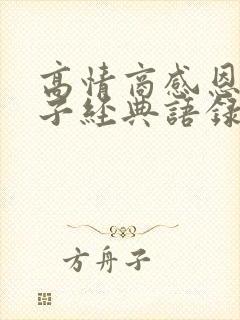 高情商感恩
子經典語錄
方舟子